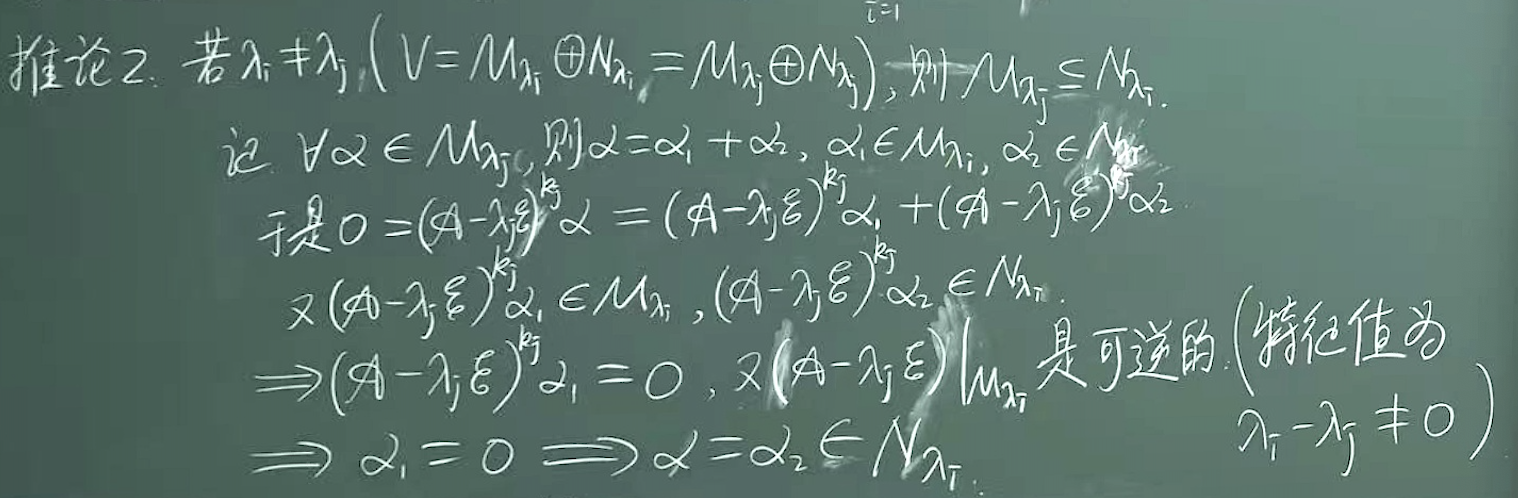 i=1
推论2. 若λᵢ≠λⱼ (V=M_{λᵢ}⊕N_{λᵢ}=M_{λⱼ}⊕N_{λⱼ}), 则 M_{λⱼ}⊆N_{λᵢ}.
记 ∀α∈M_{λⱼ}, 则α=α₁+α₂, α₁∈M_{λᵢ}, α₂∈N_{λᵢ}
于是 0=(𝒜-λⱼℰ)^{kⱼ}α=(𝒜-λⱼℰ)^{kⱼ}α₁+(𝒜-λⱼℰ)^{kⱼ}α₂.
又(𝒜-λⱼℰ)^{kⱼ}α₁∈M_{λᵢ}, (𝒜-λⱼℰ)^{kⱼ}α₂∈N_{λᵢ}.
⟹(𝒜-λⱼℰ)^{kⱼ}α₁=0, 又(𝒜-λⱼℰ)|_{M_{λᵢ}} 是可逆的.(特征值为
λᵢ-λⱼ≠0)
⟹ α₁=0 ⟹ α=α₂∈N_{λᵢ}.